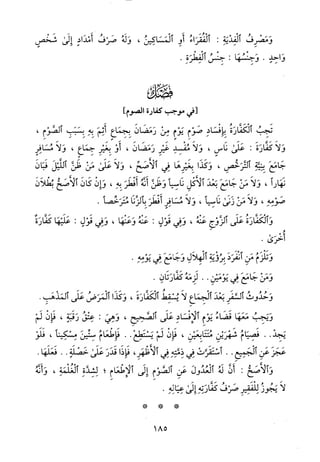 وَمَصْرِفُ ٱلْفِدْيَةِ : ٱلْفُقَرَاءُ أَوِ ٱلْمَسَاكِينُ ، وَلَهُ صَرْفُ أَمْدَادٍ إِلَىٰ شَخْصٍ
وَاحِدٍ . وَجِنْسُهَا : جِنْسُ ٱلْفِطْرَةِ .
فَصْلٌ
[في موجب كفارة الصوم]
تَجِبُ ٱلْكَفَّارَةُ بِإِفْسَادِ صَوْمِ يَوْمٍ مِنْ رَمَضَانَ بِجِمَاعٍ أَثِمَ بِهِ بِسَبَبِ ٱلصَّوْمِ ،
وَلاَ كَفَّارَةَ : عَلَىٰ نَاسٍ ، وَلاَ مُفْسِدِ غَيْرِ رَمَضَانَ ، أَوْ بِغَيْرِ جِمَاعٍ ، وَلاَ مُسَافِرٍ
جَامَعَ بِنِيَّةِ ٱلتَّرَخُّصِ ، وَكَذَا بِغَيْرِهَا فِي ٱلأَصَحِّ ، وَلاَ عَلَىٰ مَنْ ظَنَّ ٱللَّيْلَ فَبَانَ
نَهَاراً ، وَلاَ مَنْ جَامَعَ بَعْدَ ٱلأَكْلِ نَاسِياً وَظَنَّ أَنَّهُ أَفْطَرَ بِهِ ، وَإِنْ كَانَ ٱلأَصَحُّ بُطْلاَنَ
صَوْمِهِ ، وَلاَ مَنْ زَنَىٰ نَاسِياً ، وَلاَ مُسَافِرٍ أَفْطَرَ بِٱلزِّنَا مُتَرَخِّصاً .
وَٱلْكَفَّارَةُ عَلَى ٱلزَّوْجِ عَنْهُ ، وَفِي قَوْلٍ : عَنْهُ وَعَنْهَا ، وَفِي قَوْلٍ : عَلَيْهَا كَفَّارَةٌ
أُخْرَىٰ .
وَتَلْزَمُ مَنِ ٱنْفَرَدَ بِرُؤْيَةِ ٱلْهِلاَلِ وَجَامَعَ فِي يَوْمِهِ .
وَمَنْ جَامَعَ فِي يَوْمَيْنِ . . لَزِمَهُ كَفَّارَتَانِ .
وَحُدُوثُ ٱلسَّفَرِ بَعْدَ ٱلْجِمَاعِ لاَ يُسْقِطُ ٱلْكَفَّارَةَ ، وَكَذَا ٱلْمَرَضُ عَلَى ٱلْمَذْهَبِ .
وَيَجِبُ مَعَهَا قَضَاءُ يَوْمِ ٱلإِفْسَادِ عَلَى ٱلصَّحِيحِ ، وَهِيَ : عِتْقُ رَقَبَةٍ ، فَإِنْ لَمْ
يَجِدْ . . فَصِيَامُ شَهْرَيْنِ مُتَتَابِعَيْنِ ، فَإِنْ لَمْ يَسْتَطِعْ . . فَإِطْعَامُ سِتِّينَ مِسْكِيناً ، فَلَوْ
عَجَزَ عَنِ ٱلْجَمِيعِ . . ٱسْتَقَرَّتْ فِي ذِمَّتِهِ فِي ٱلأَظْهَرِ ، فَإِذَا قَدَرَ عَلَىٰ خَصْلَةٍ . . فَعَلَهَا .
وَٱلأَصَحُّ : أَنَّ لَهُ ٱلْعُدُولَ عَنِ ٱلصَّوْمِ إِلَى ٱلإِطْعَامِ ؛ لِشِدَّةِ ٱلْغُلْمَةِ ، وَأَنَّهُ
لاَ يَجُوزُ لِلْفَقِيرِ صَرْفُ كَفَّارَتِهِ إِلَىٰ عِيَالِهِ .
* * *
١٨٥